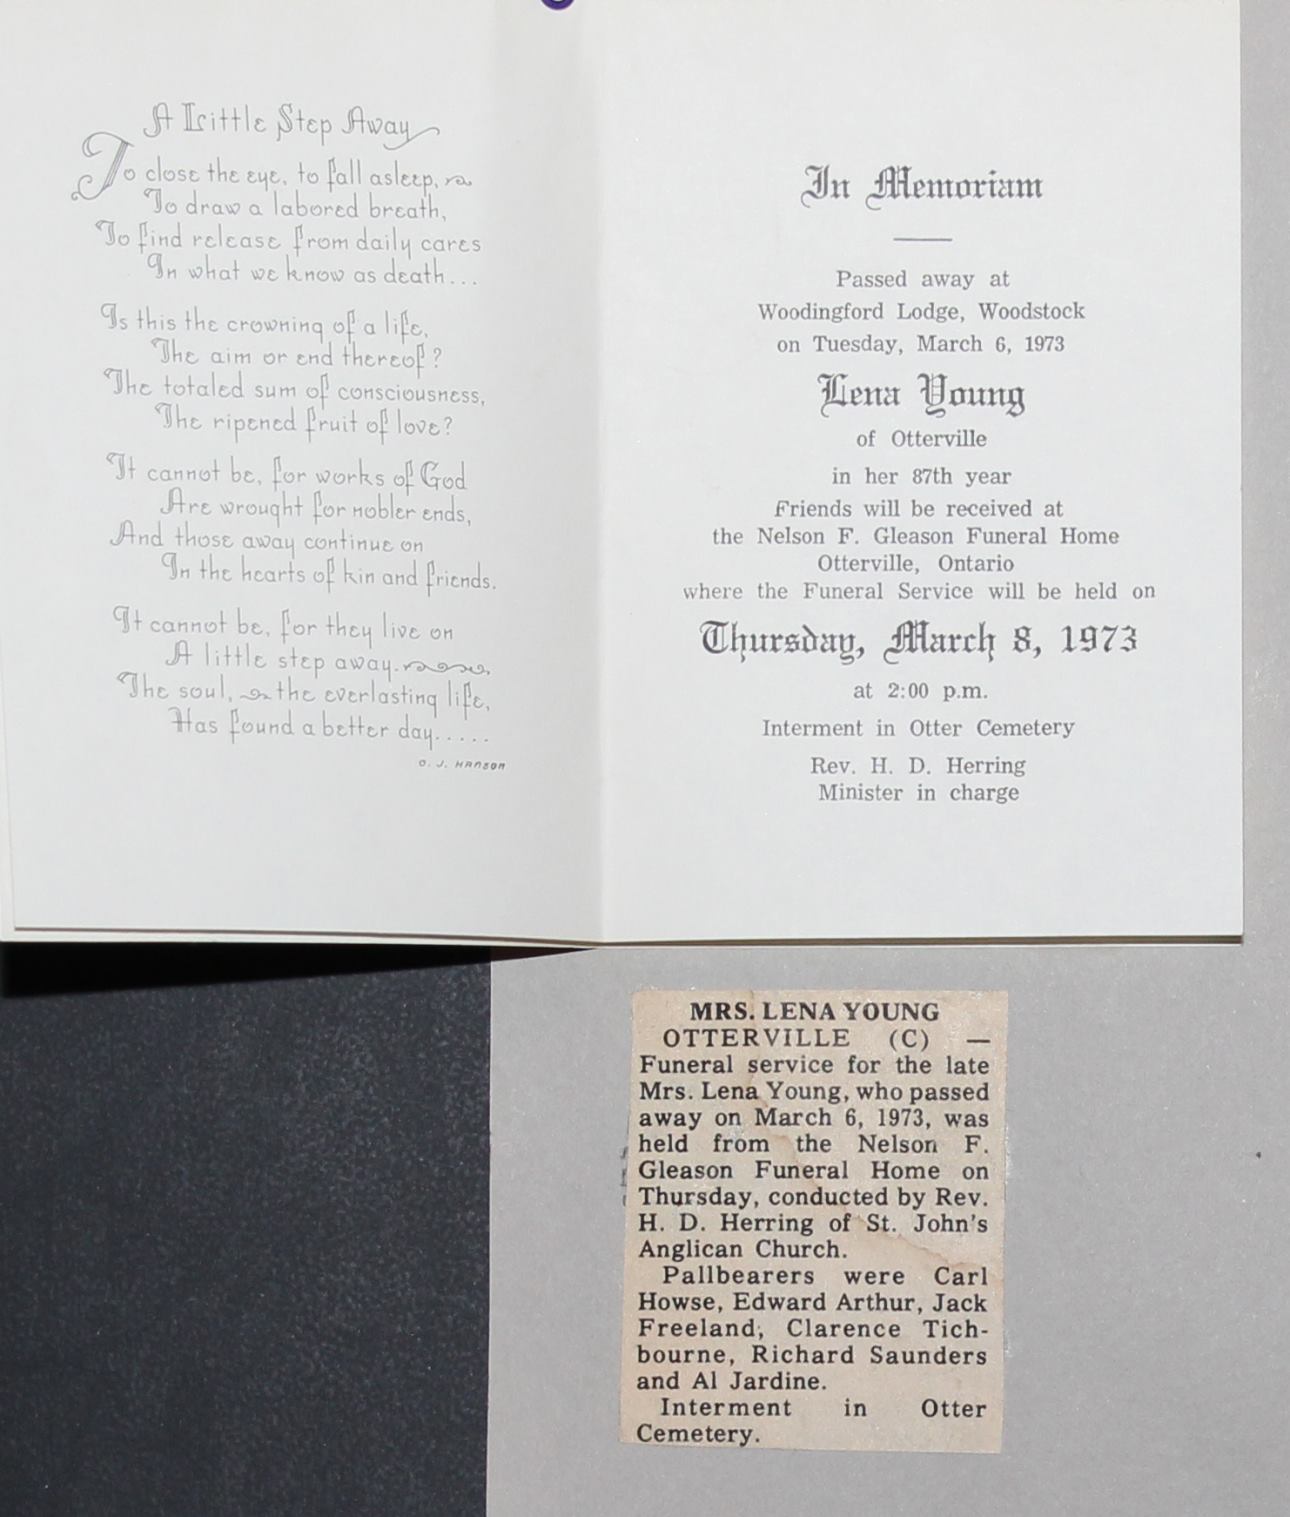 A Little Step Away
To close the eye, to fall asleep,
To draw a labored breath,
To find release from daily cares
In what we know as death...
Is this the crowning of a life,
The aim or end thereof?
The totaled sum of consciousness,
The ripened fruit of love?
It cannot be, for works of God
Are wrought for nobler ends,
And those away continue on
In the hearts of kin and friends.
It cannot be, for they live on
A little step away.
The soul, the everlasting life,
Has found a better day.....
O. J. HANSON
In Memoriam
Passed away at
Woodingford Lodge, Woodstock
on Tuesday, March 6, 1973
Lena Young
of Otterville
in her 87th year
Friends will be received at
the Nelson F. Gleason Funeral Home
Otterville, Ontario
where the Funeral Service will be held on
Thursday, March 8, 1973
at 2:00 p.m.
Interment in Otter Cemetery
Rev. H. D. Herring
Minister in charge
MRS. LENA YOUNG
OTTERVILLE (C) —
Funeral service for the late
Mrs. Lena Young, who passed
away on March 6, 1973, was
held from the Nelson F.
Gleason Funeral Home on
Thursday, conducted by Rev.
H. D. Herring of St. John's
Anglican Church.
Pallbearers were Carl
Howse, Edward Arthur, Jack
Freeland, Clarence Tich-
bourne, Richard Saunders
and Al Jardine.
Interment in Otter
Cemetery.